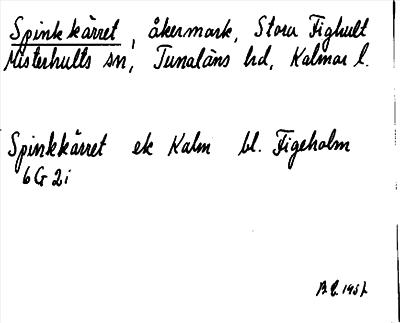 Spinkkärret, åkermark, Stora Fighult
Misterhults sn, Tunaläns hd, Kalmar l.
Spinkkärret ek Kalm bl. Figeholm
6G 2i